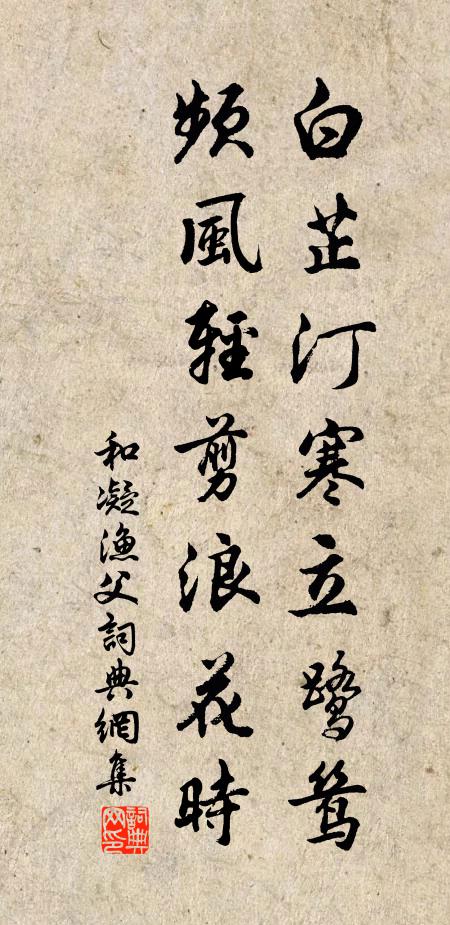 白芷汀寒立鷺鷥
頻風輕剪浪花時
和凝漁父詞典網集
詞典网印